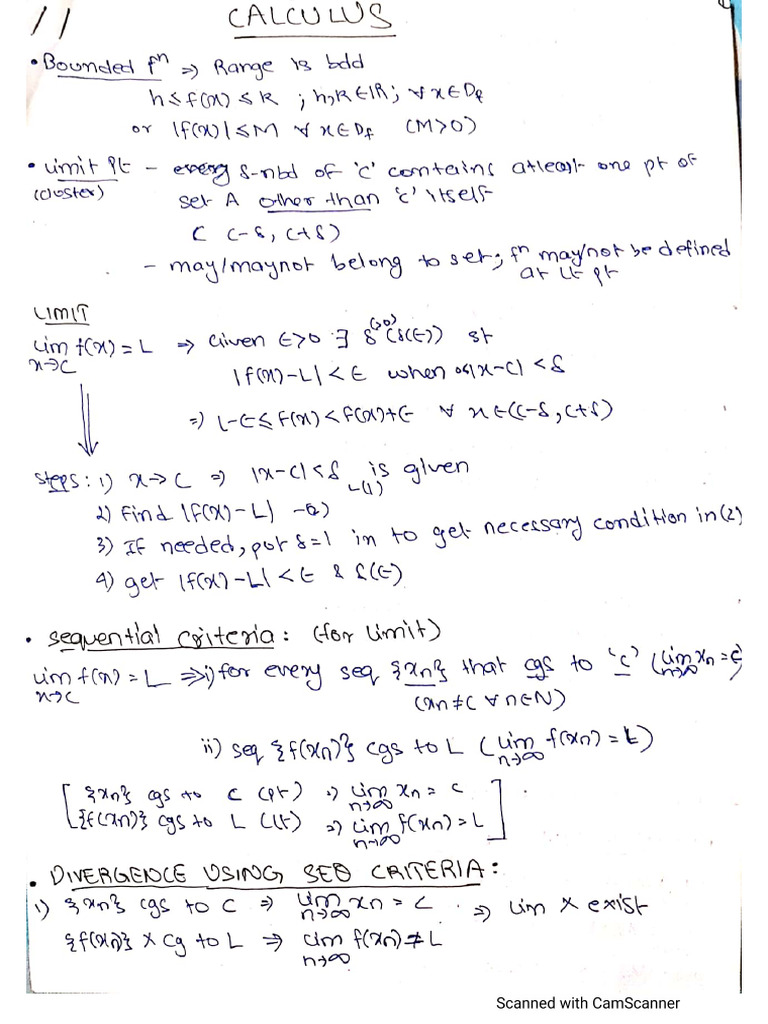 CALCULUS
• Bounded fⁿ ⇒ Range is bdd
h ≤ f(x) ≤ k ; h,k ∈ IR; ∀ x ∈ Df
or |f(x)| ≤ M ∀ x ∈ Df (M>0)
• Limit Pt – every δ-nbd of 'c' contains atleast one pt of
(cluster) set A other than 'c' itself
( c-δ, c+δ)
– may/maynot belong to set; fⁿ may/not be defined
at lt pt
LIMIT
lim f(x) = L ⇒ Given ε>0 ∃ δ (>0) (δ(ε)) st
x→c
|f(x)-L| < ε when 0<|x-c| < δ
⇒ L-ε ≤ f(x) < f(x)+ε ∀ x ∈ (c-δ, c+δ)
Steps: 1) x→c ⇒ |x-c|<δ is given
–(1)
2) Find |f(x)-L| –(2)
3) If needed, put δ=1 in to get necessary condition in (2)
4) get |f(x)-L| < ε & δ(ε)
• Sequential Criteria: (for limit)
lim f(x) = L ⇒ i) for every seq {xn} that cgs to 'c' (lim xn = c)
x→c n→∞
(xn ≠ c ∀ n ∈ N)
ii) seq {f(xn)} cgs to L (lim f(xn) = L)
n→∞
[ {xn} cgs to c (pt) ⇒ lim xn = c
n→∞
{f(xn)} cgs to L (lt) ⇒ lim f(xn) = L ]
n→∞
• DIVERGENCE USING SEQ CRITERIA:
1) {xn} cgs to c ⇒ lim xn = c ⇒ lim × exist
n→∞
{f(xn)} × cg to L ⇒ lim f(xn) ≠ L
n→∞
Scanned with CamScanner